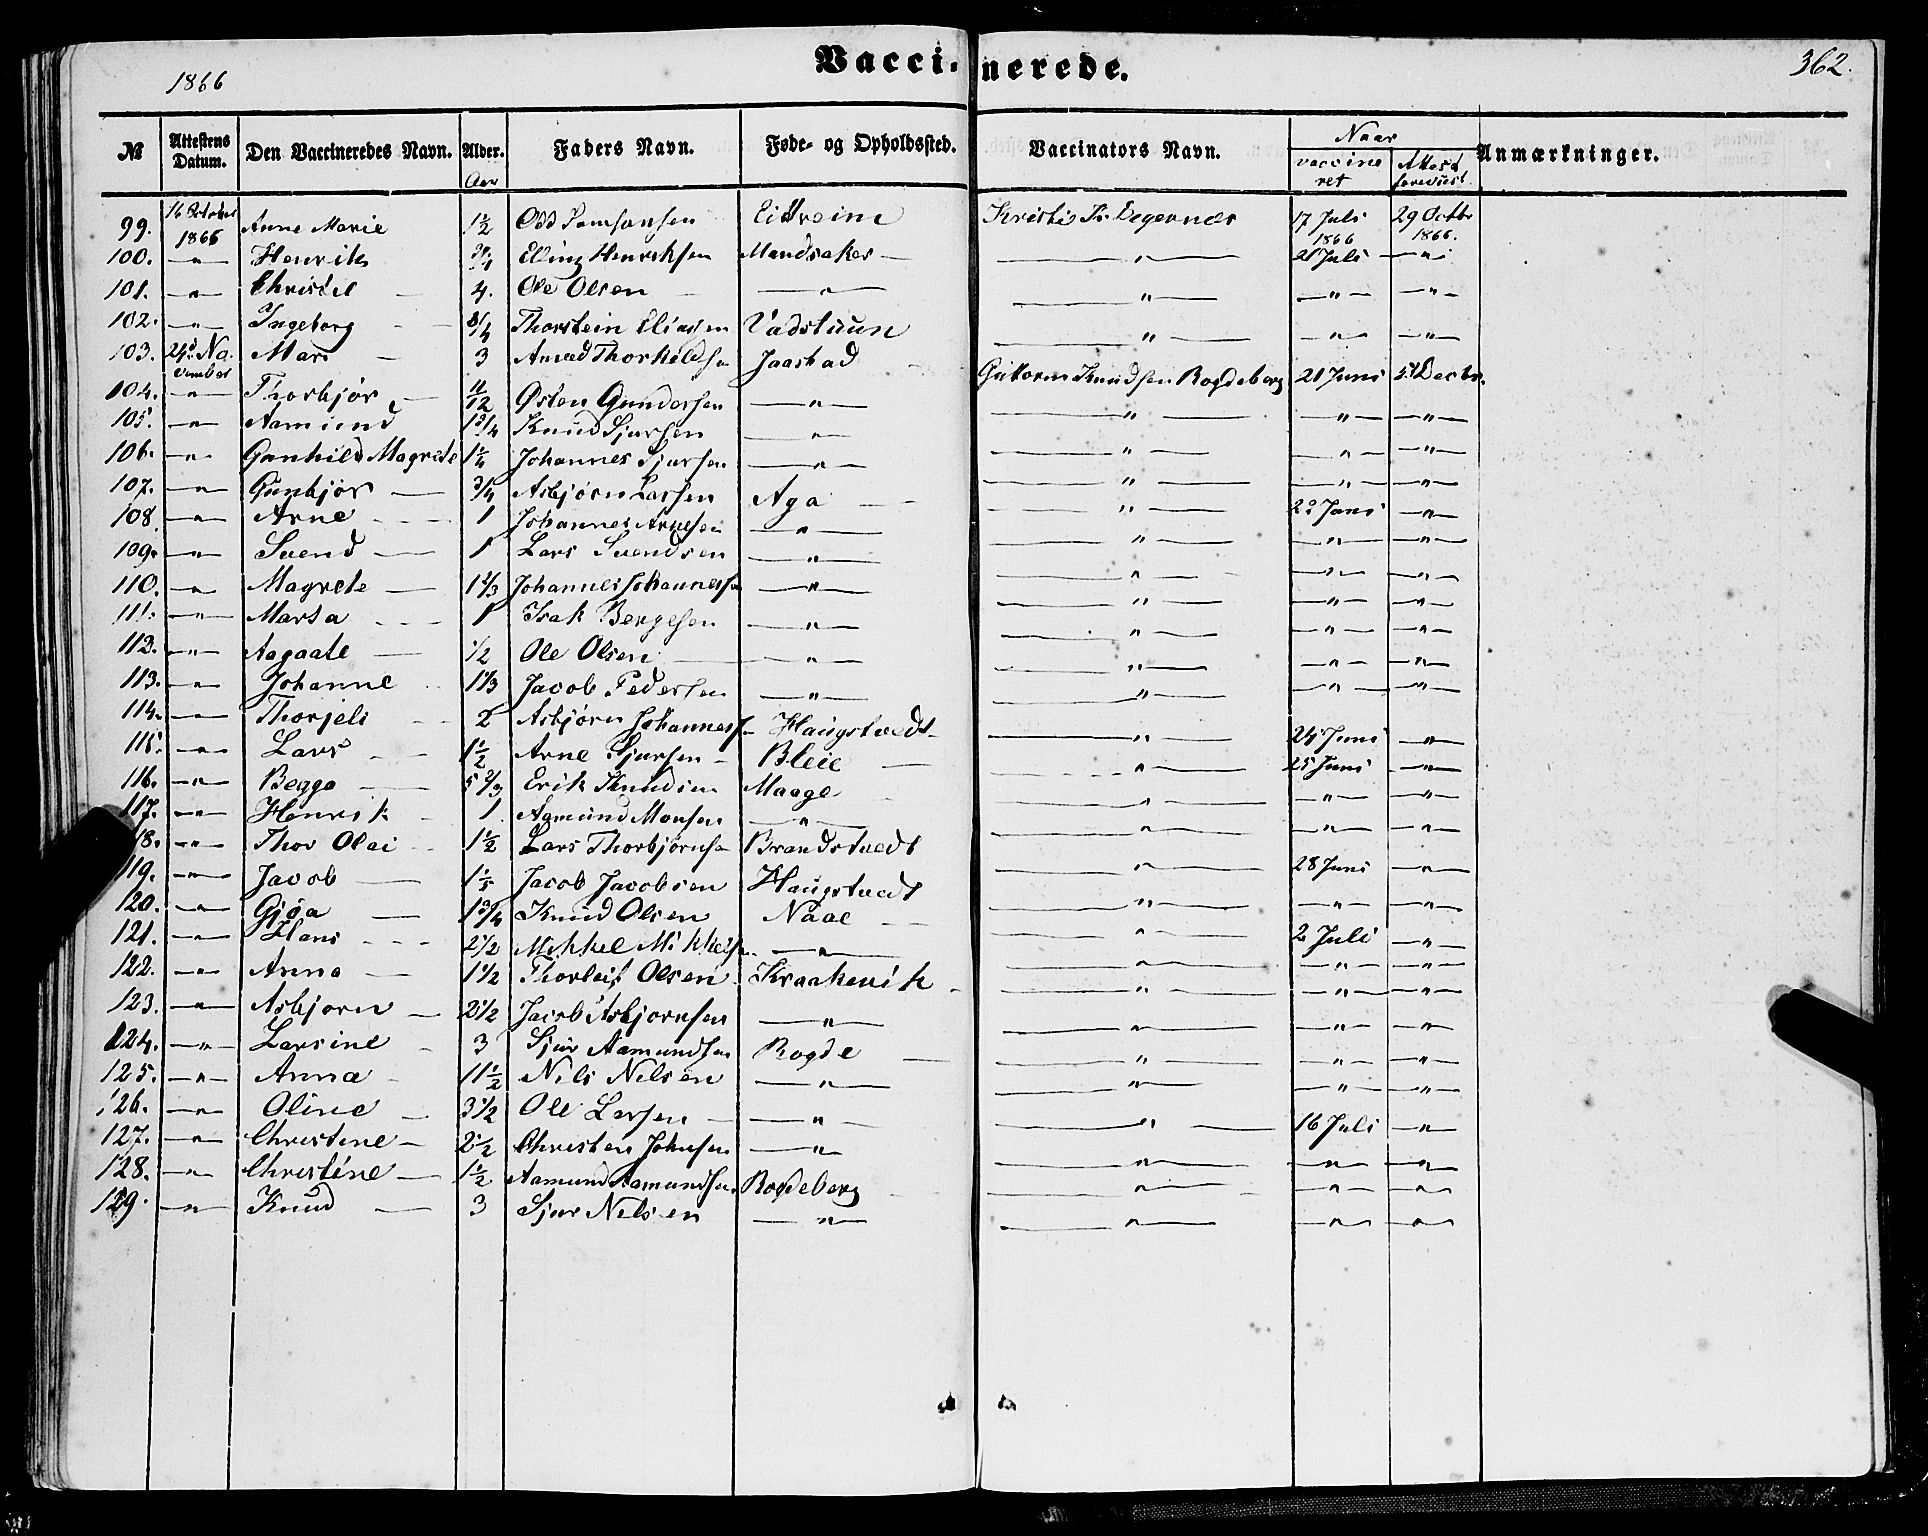 1866 Vaccinerede. 362.
№ Attestens Datum. Den Vaccineredes Navn. Alder. Faders Navn. Føde- og Opholdssted. Vaccinators Navn. Naar Anmærkninger.
Aar vaccineret Attest forevist
99. 16 October 1866 Anne Marie 1½ Odd Samsonsen Eitreim Kristi 17 Juli 1866 29 Octbr 1866.
100. —"— Henrik ¾ Elling Henriksen Mandsaker —"— 21 Juli —"—
101. —"— Christel 4. Ole Olsen —"— —"— —"— —"—
102. —"— Ingeborg ¾ Thorstein Eliassen Vadstuun —"— —"— —"—
103. 24d November Mari 3 Amund Thorkildsen Jaastad Guttorm Knudsen Rogdeberg 21 Juni 5t Decbr.
104. —"— Thorbjør 11/12 Østen Gundersen —"— —"— —"— —"—
105. —"— Aamund 1¾ Knud Sjursen —"— —"— —"— —"—
106. —"— Gunhild Magrete 1¼ Johannes Sjursen —"— —"— —"— —"—
107. —"— Gunbjør ¾ Asbjørn Larsen Aga —"— 22 Juni —"—
108. —"— Arne 1 Johannes Arnesen —"— —"— —"— —"—
109. —"— Svend 1 Lars Svendsen —"— —"— —"— —"—
110. —"— Magrete 1⅔ Johannes Johannessen —"— —"— —"— —"—
111. —"— Marta 1 Isak Bergesen —"— —"— —"— —"—
112. —"— Aagaate ½ Ole Olsen —"— —"— —"— —"—
113. —"— Johanne 1⅓ Jacob Pedersen —"— —"— —"— —"—
114. —"— Thorjels 2 Asbjørn Johannessen Haugstvedt —"— 24 Juni —"—
115. —"— Lars 1½ Arne Sjursen Bleie —"— 25 Juni —"—
116. —"— Begga 5⅔ Erik Knudsen Maage —"— —"— —"—
117. —"— Henrik 1 Aamund Monsen —"— —"— —"— —"—
118. —"— Thor Olai 1½ Lars Thorbjørnsen Brandstvedt —"— 28 Juni —"—
119. —"— Jacob 1⅕ Jacob Jacobsen Haugstvedt —"— —"— —"—
120. —"— Gjøa 1¾ Knud Olsen Naae —"— 2 Juli —"—
121. —"— Hans 2½ Mikkel Mikkelsen —"— —"— —"— —"—
122. —"— Anna 1½ Thorleif Olsen Kraakevik —"— —"— —"—
123. —"— Asbjørn 2½ Jacob Asbjørnsen —"— —"— —"— —"—
124. —"— Larsine 3 Sjur Aamundsen Rogde —"— —"— —"—
125. —"— Anna 11½ Nils Nilsen —"— —"— —"— —"—
126. —"— Oline 3½ Ole Larsen —"— —"— 16 Juli —"—
127. —"— Christine 2½ Christen Johnsen —"— —"— —"— —"—
128. —"— Christine 1½ Aamund Aamundsen Rogdeberg —"— —"— —"—
129. —"— Knud 3 Sjur Nilsen —"— —"— —"— —"—